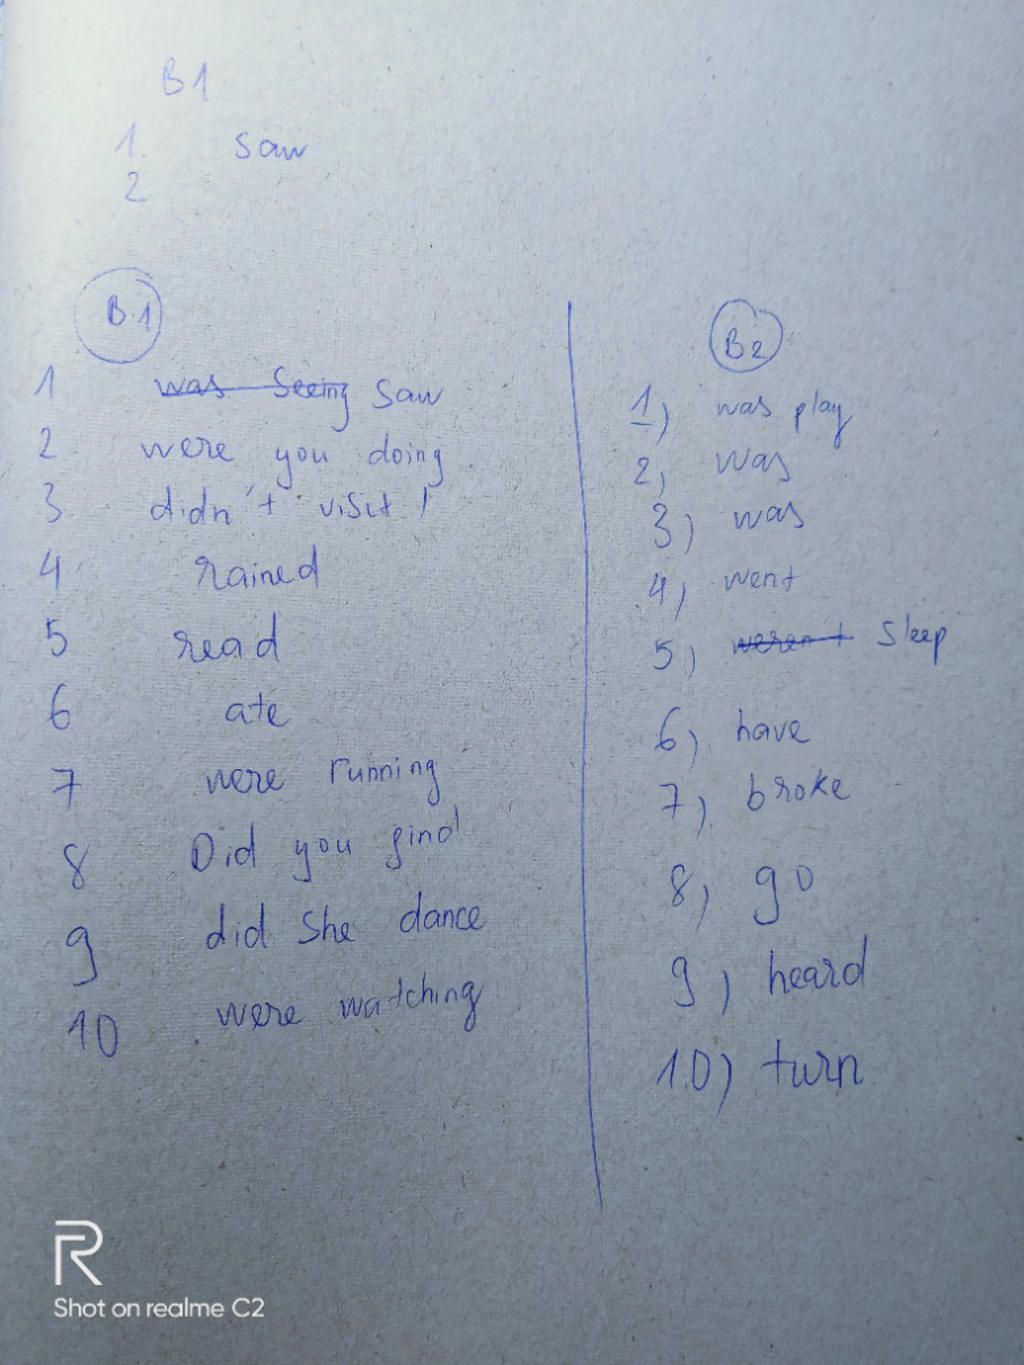 B1
1. saw
2
B.1
1 was seeing saw
2 were you doing.
3 didn't visit!
4 rained
5 read
6 ate
7 were running
8 Did you find
9 did she dance
10 were watching
B2
1) was play
2) was
3) was
4) went
5) weren't sleep
6) have
7) broke
8) go
9) heard
10) turn
R
Shot on realme C2